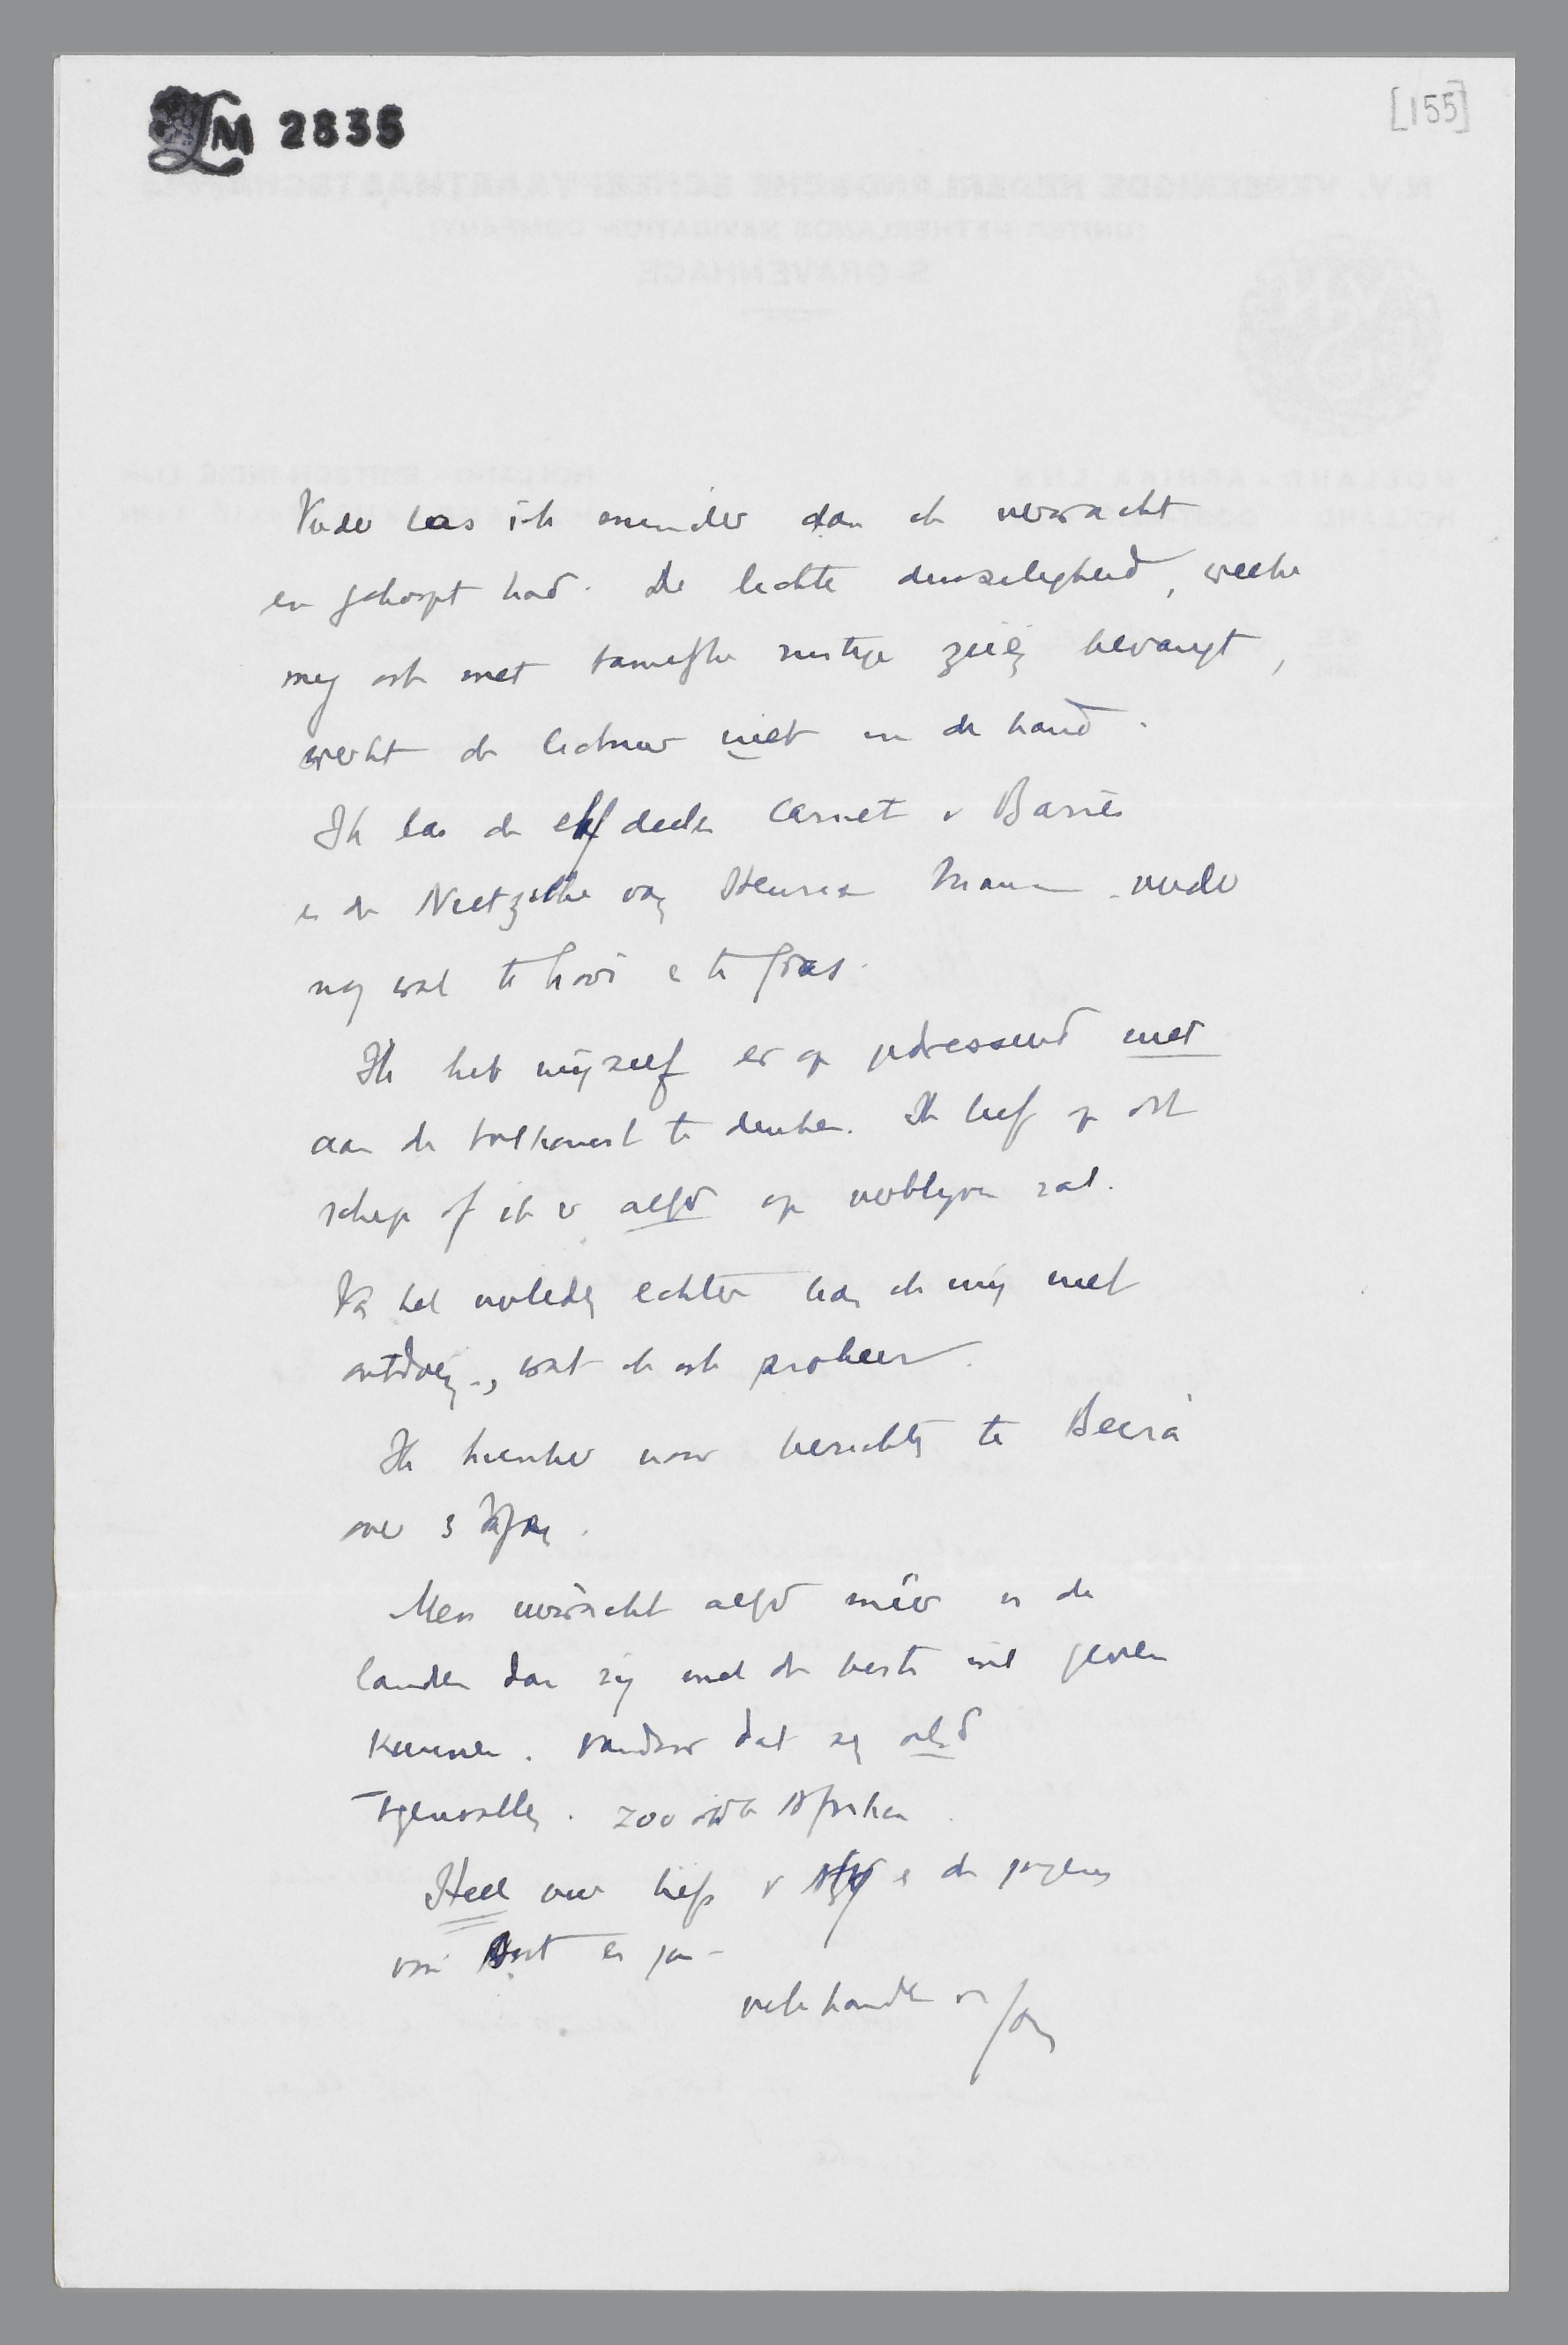 LM 2835
[155]
Verder las ik minder dan ik verwacht
en gehoopt had. De lichte duizeligheid, welke
mij ook met tamelijk rustige zeeën bevangt,
werkt de lectuur niet in de hand.
Ik las de elf deelen Carnet v Barrès
en de Nietzsche van Heinrich Mann verder
nog wat te hooi en te gras.
Ik heb mijzelf er op gedresseerd niet
aan de toekomst te denken. Ik leef op dit
schip of ik er altijd op verblijven zal.
Van het verleden echter kan ik mij niet
ontdoen, wat ik ook probeer.
Ik hunker naar berichten te Beira
over 3 dagen.
Men verwacht altijd méér v de
landen dan zij met de beste wil geven
kunnen. Vandaar dat zij altijd
tegenvallen. Zoo ook Afrika.
Heel veel liefs v Atty e de jongens
van Bert en Jan –
vele handen v Jany